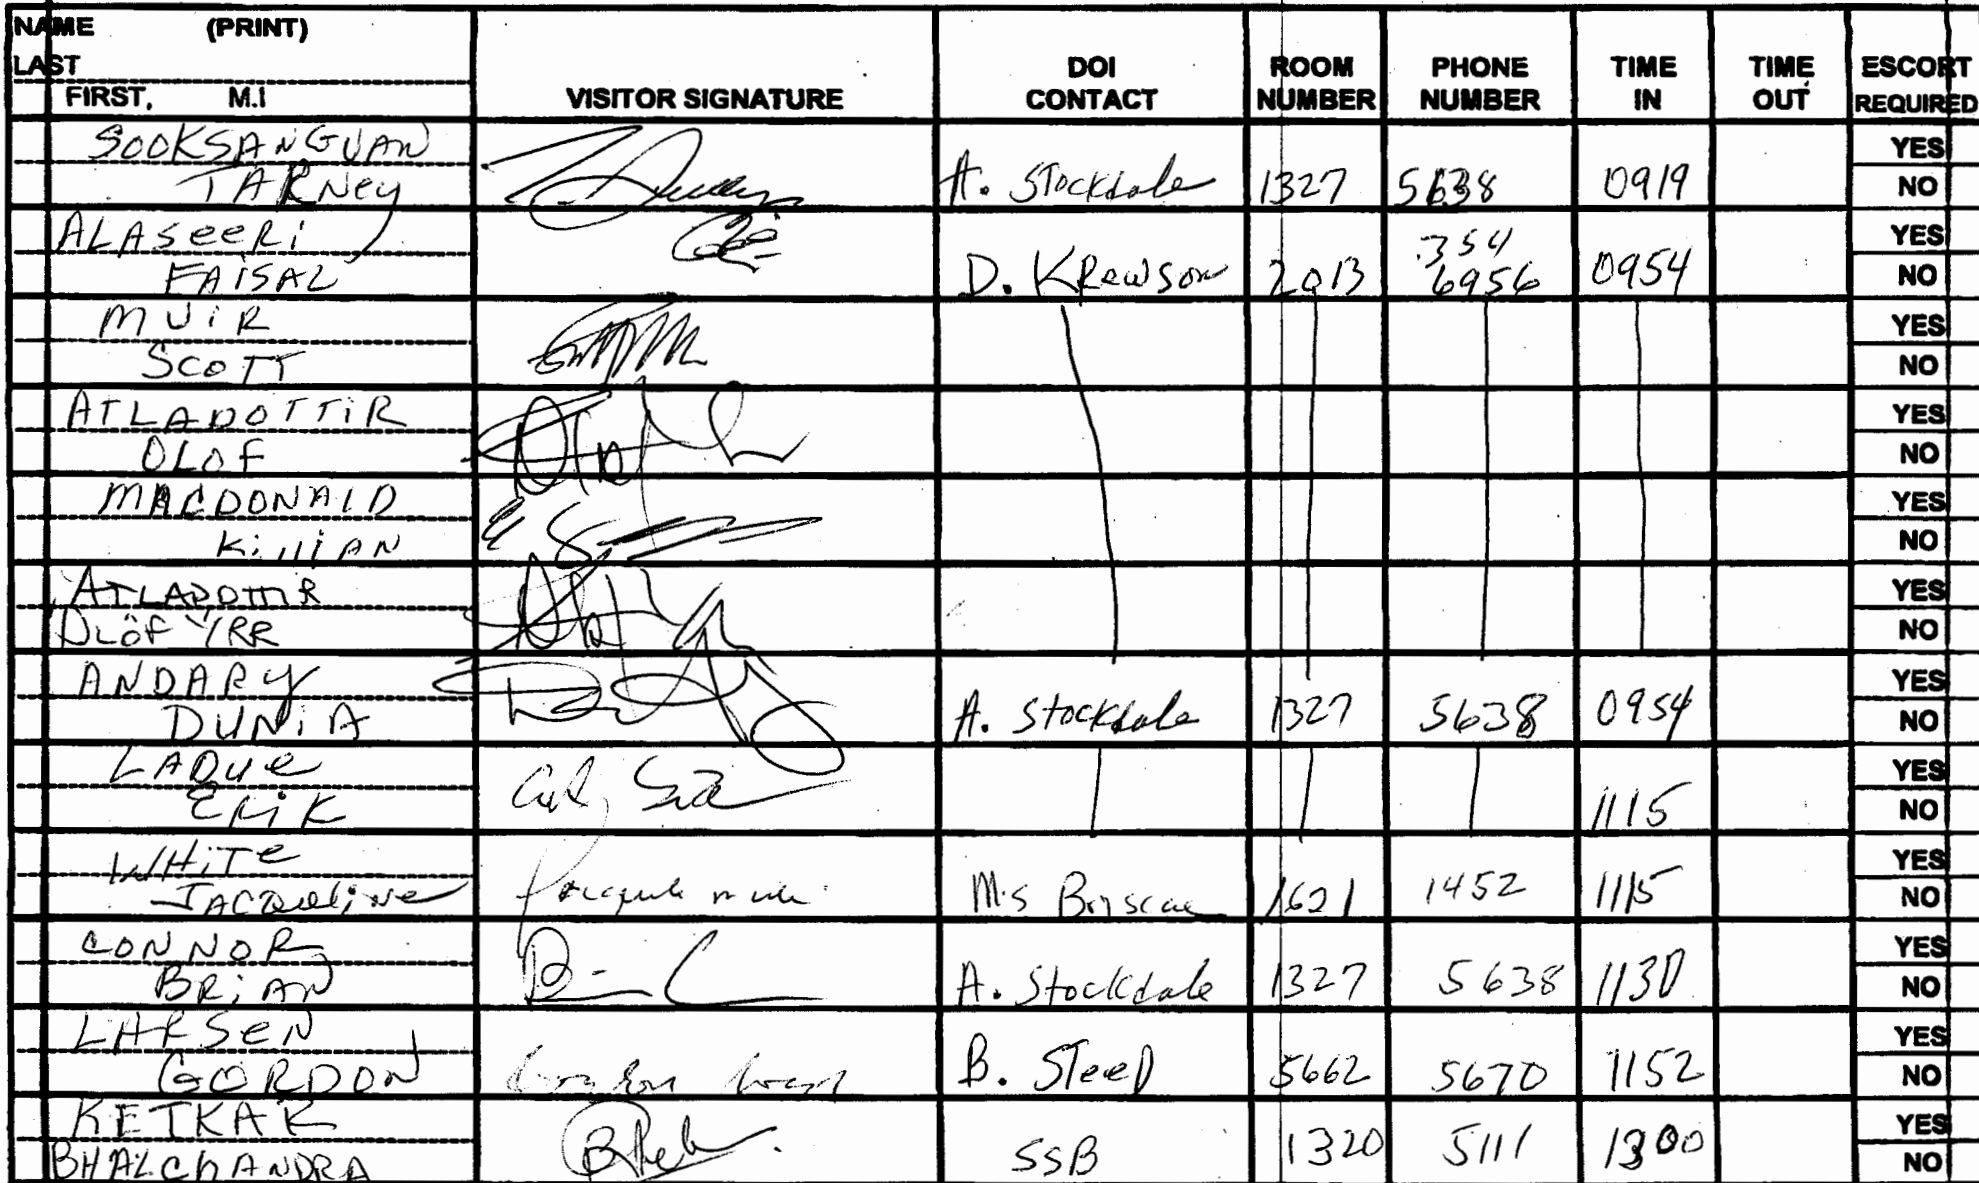 NAME (PRINT)
LAST
FIRST, M.I
VISITOR SIGNATURE
DOI CONTACT
ROOM NUMBER
PHONE NUMBER
TIME IN
TIME OUT
ESCORT REQUIRED
SOOKSANGUAN YES
TARNey A. Stockdale 1327 5638 0919 NO
ALASeeRi 354 YES
FAiSAL D. KRewson 2013 6956 0954 NO
MUiR YES
SCOTT NO
ATLADOTTiR YES
OLOF NO
MACDONALD YES
KilliAN NO
ATLADOTTIR YES
OLÖF YRR NO
ANDARY YES
DUNiA A. Stockdale 1327 5638 0954 NO
LADue YES
ERiK 1115 NO
WHiTe YES
JACQueliNe Ms Briscoe 1621 1452 1115 NO
CONNOR YES
BRiAN A. Stockdale 1327 5638 1130 NO
LARSeN YES
GORDON B. STeeD 5662 5670 1152 NO
KETKAR YES
BHALCHANDRA SSB 1320 5111 1300 NO